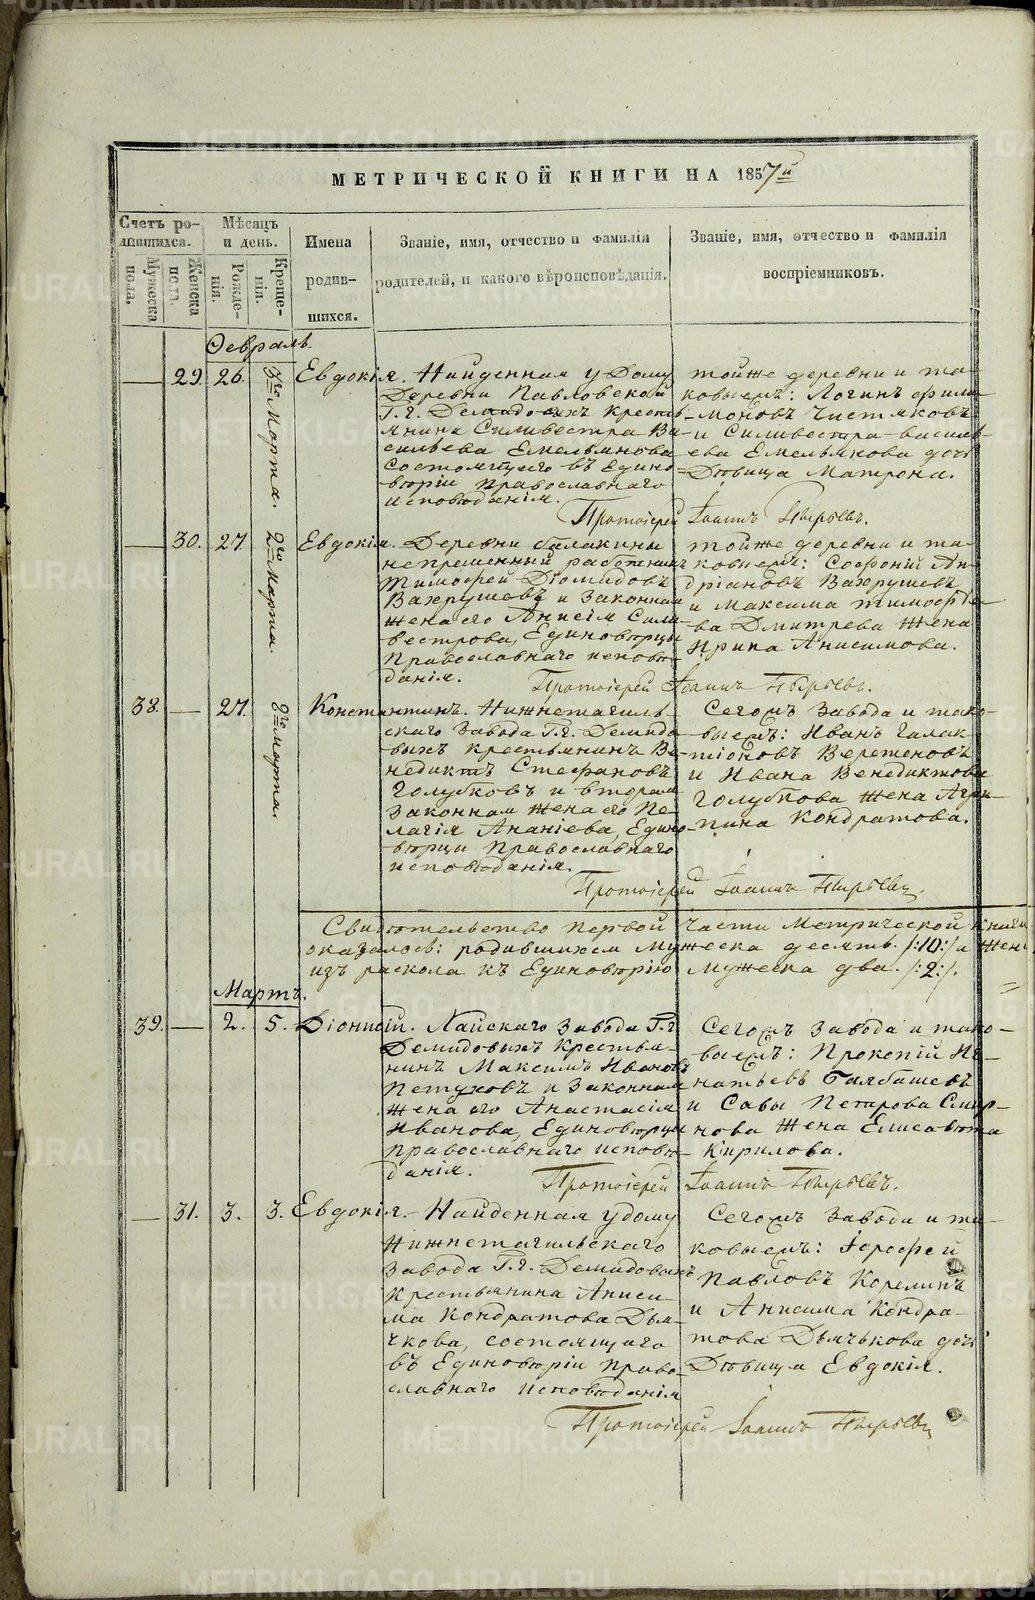 МЕТРИЧЕСКОЙ КНИГИ НА 1857й
Счетъ ро-
дившихся.
Мужеска
пола.
Женска
пола.
Мѣсяцъ
и день.
Рожде-
нія.
Креще-
нія.
Имена
родив-
шихся.
Званіе, имя, отчество и фамилія
родителей, и какого вѣроисповѣданія.
Званіе, имя, отчество и фамилія
воспріемниковъ.
Февраль.
29. 26.
Марта.
Евдокія. Найденная у дому
Деревни Павловской
Г.г. Демидовыхъ крестья-
янина Сильвестра Ва-
сильева Емельянова
состоящаго въ Едино-
вѣріи Православнаго
исповѣданія.
тойже деревни и та-
ковыемъ: Логинъ Фили-
моновъ Чистяковъ
и Сильвестра Василь-
ева Емельянова дочь
Дѣвица Матрона.
Протоіерей Іоаннъ Пырьевъ.
30. 27.
2го Марта.
Евдокія. Деревни Балакины
непременный работникъ
Тимофей Діомидовъ
Вахрушевъ и законная
жена его Анисія Сили-
вестрова, Единовѣрцы
Православнаго исповѣ-
данія.
тойже деревни и та-
ковыемъ: Софоній Ан-
дріановъ Вахрушевъ
и Максима Тимофѣе-
ва Дмитрева жена
Ирина Анисимова.
Протоіерей Іоаннъ Пырьевъ.
38. 27.
8го Марта
Константинъ. Нижнетагиль-
скаго Завода Г.г. Демидо-
выхъ крестьянинъ Ве-
недиктъ Стефановъ
Голубковъ и вторая
законная жена его Пе-
лагія Ананіева, Едино-
вѣрцы Православнаго
исповѣданія.
Сегожъ Завода и тако-
выемъ: Иванъ Галак-
тіоновъ Веретеновъ
и Ивана Венедиктова
Голубкова жена Агри-
пина Кондратова.
Протоіерей Іоаннъ Пырьевъ.
первой части Метрической книги
оказалось: родившихся мужеска десять /:10:/ и жен
изъ раскола къ Единовѣрію мужеска два. /:2:/.
Мартъ.
39. 2. 5. Діонисій. Лайскаго Завода Г.г.
Демидовыхъ крестья-
нинъ Максимъ Ивановъ
Петуховъ и законная
жена его Анастасія
Иванова, Единовѣрцы
православнаго исповѣ-
данія.
Сегожъ Завода и тако-
выемъ: Прокопій Иг-
натьевъ Балбашевъ
и Савы Петрова Смир-
нова жена Елисавѣта
Кирилова.
Протоіерей Іоаннъ Пырьевъ.
31. 3. 3. Евдокія. Найденная у дому
Нижнетагильскаго
завода Г.г. Демидовыхъ
крестьянина Аниси-
ма Кондратова Дья-
чкова, состоящаго
въ Единовѣріи право-
славнаго исповѣданія
Сегожъ Завода и та-
ковыемъ: Іерофей
Павловъ Корелинъ
и Анисима Кондра-
това Дьячькова дочь
Дѣвица Евдокія.
Протоіерей Іоаннъ Пырьевъ
METRIKI.GASO-URAL.RU